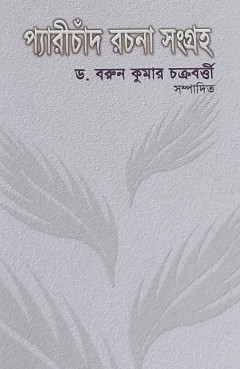 প্যারীচাঁদ রচনা সংগ্রহ
ড. বরুন কুমার চক্রবর্ত্তী
সম্পাদিত